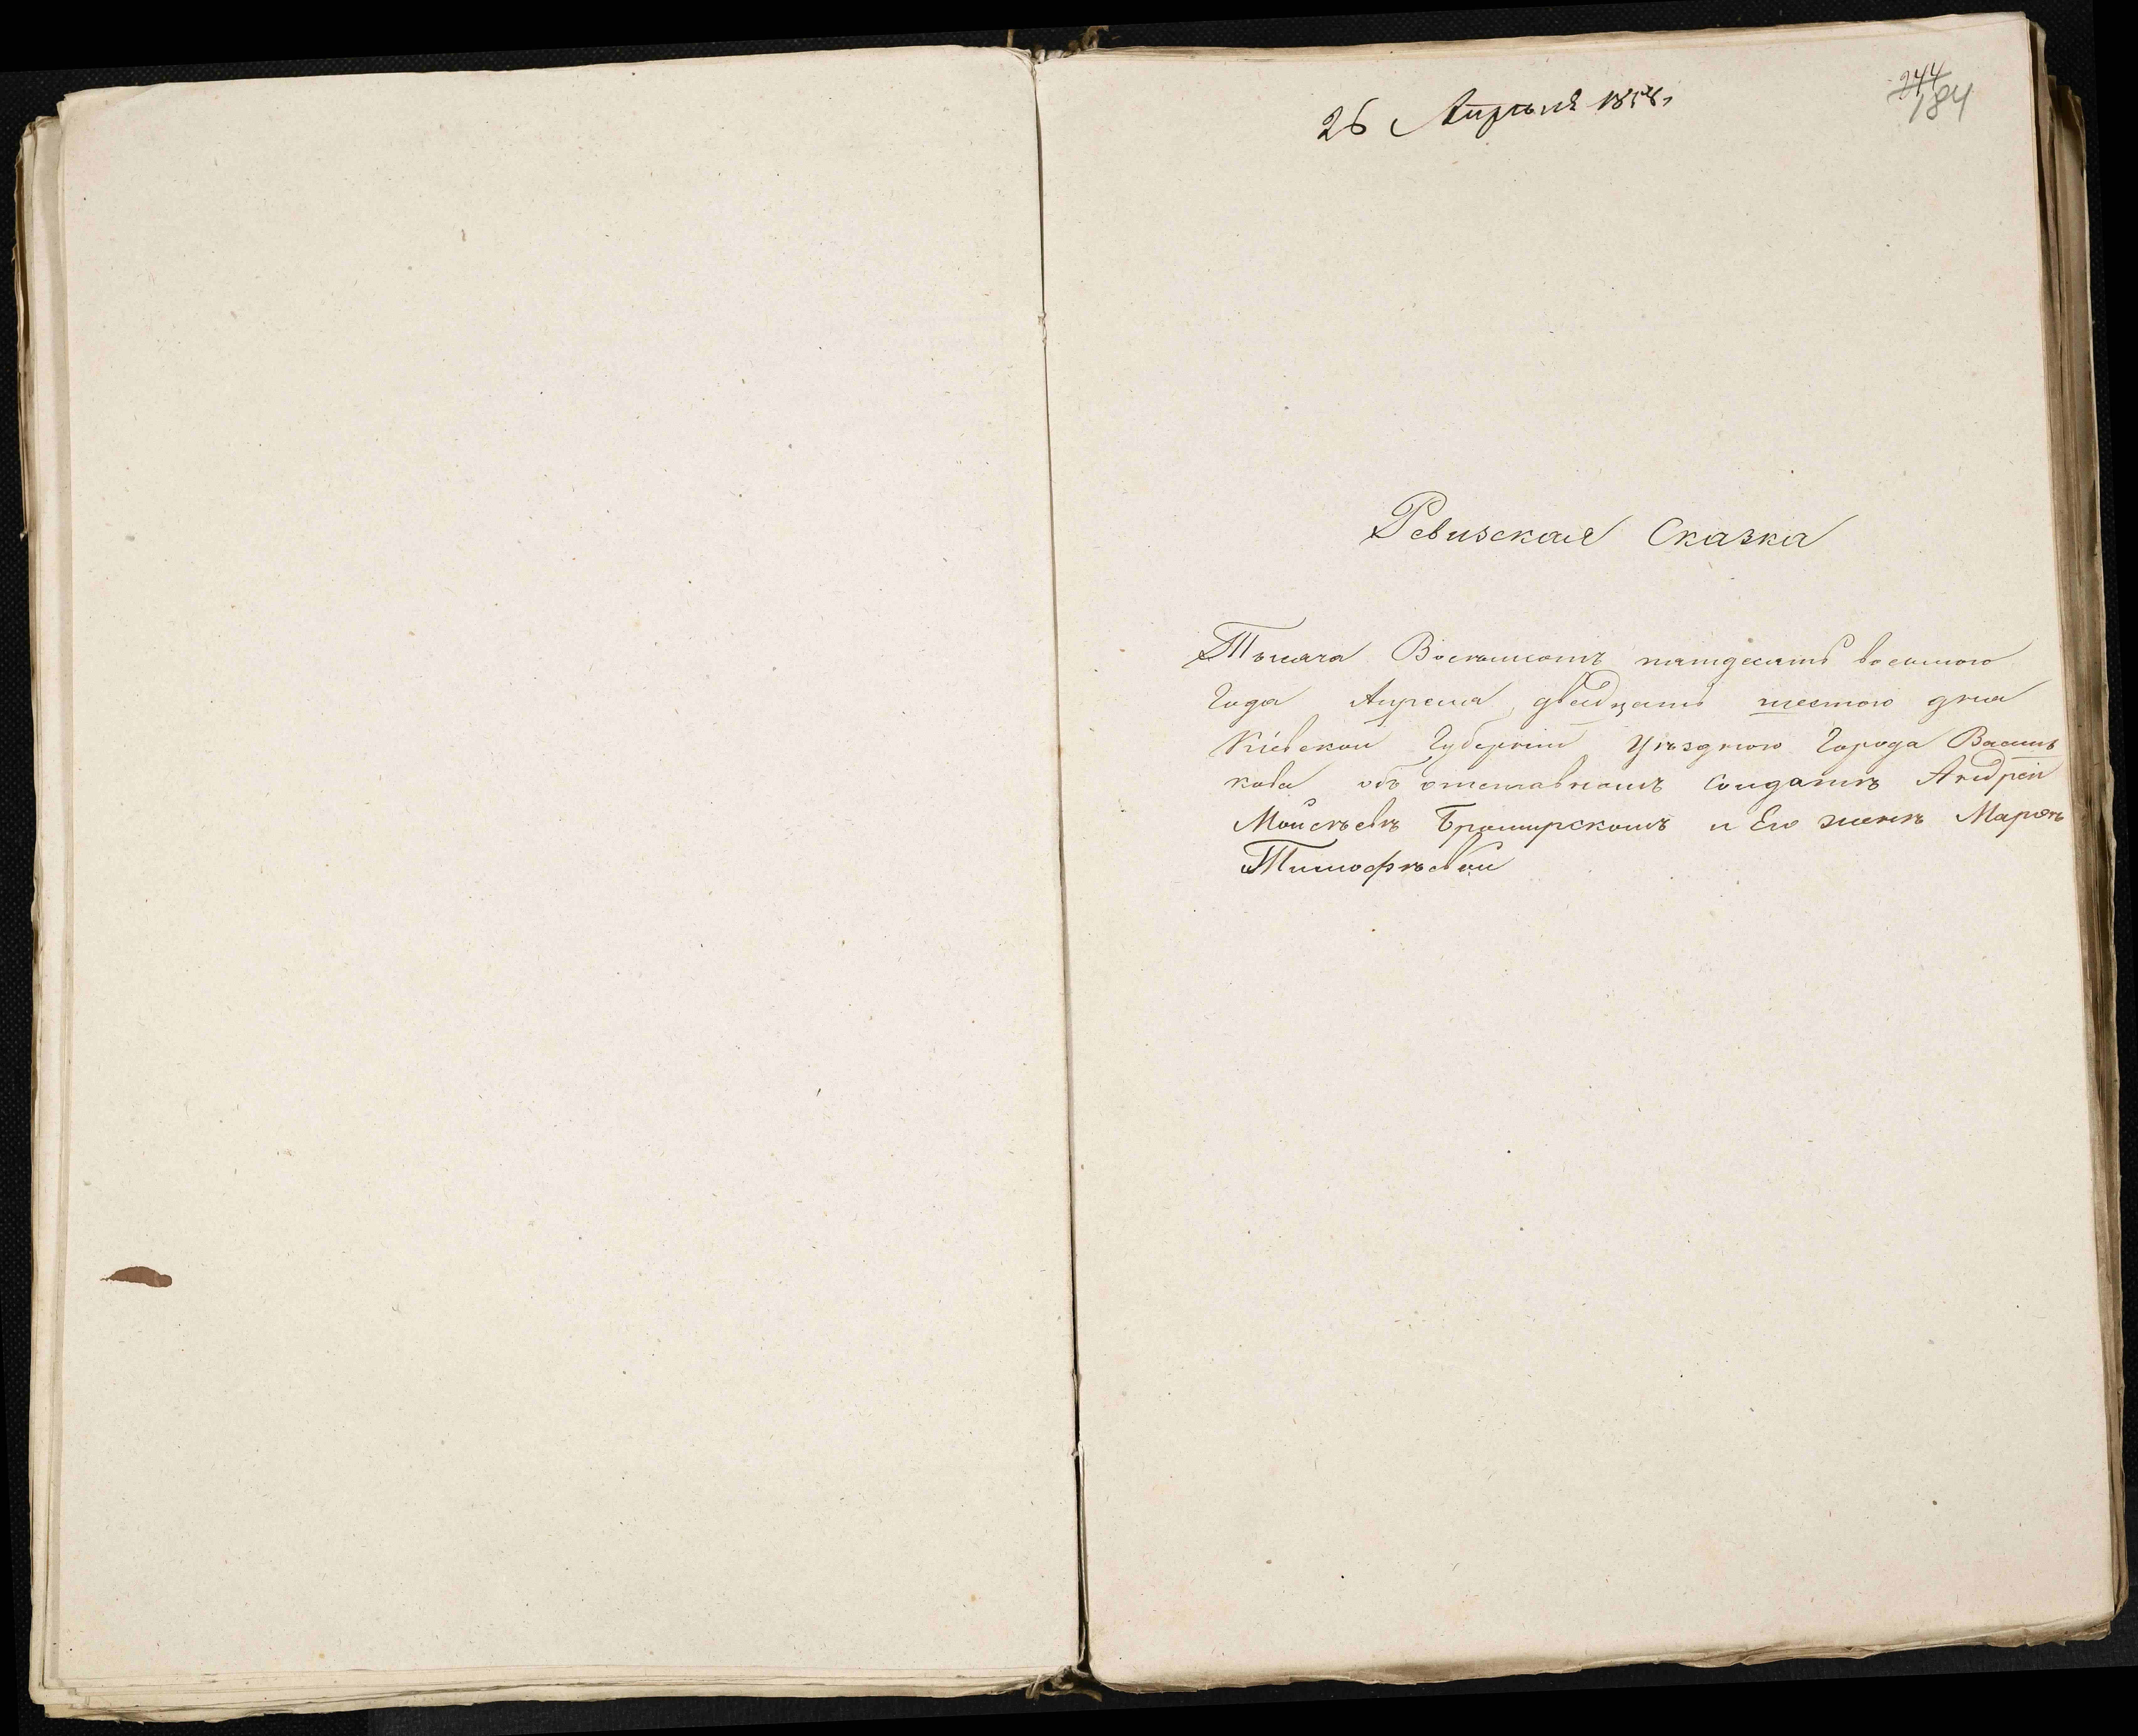 26 Апрѣля 1858,
244
184
Ревизская Сказка
Тысяча Восемьсотъ пятдесятъ восьмого
Года Апреля двадцать шестого дня
Кіевской Губерніи Уѣздного Города Василь
кова объ отставномъ солдатѣ Андреи
Мойсѣевѣ и Его женѣ
Тимофѣевой